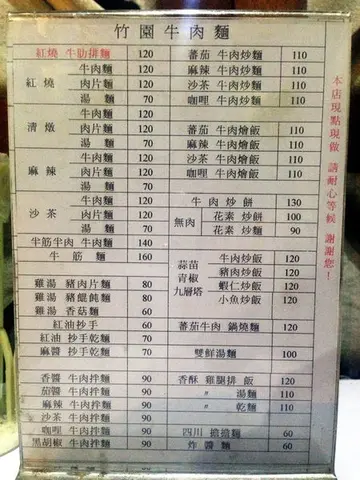 竹園牛肉麵
紅燒 牛肋排麵 120
紅燒 牛肉麵 120
肉片麵 120
湯 麵 70
清燉 牛肉麵 120
肉片麵 120
湯 麵 70
麻辣 牛肉麵 120
肉片麵 120
湯 麵 70
沙茶 牛肉麵 120
肉片麵 120
湯 麵 70
半筋半肉 牛肉麵 140
牛 筋 麵 160
雞湯 豬肉片麵 80
雞湯 豬餛飩麵 80
雞湯 香菇麵 60
紅油抄手 60
紅油 抄手乾麵 70
麻醬 抄手乾麵 70
香醬 牛肉拌麵 90
茄醬 牛肉拌麵 90
麻辣 牛肉拌麵 90
沙茶 牛肉拌麵 90
咖哩 牛肉拌麵 90
黑胡椒 牛肉拌麵 90
蕃茄 牛肉炒麵 110
麻辣 牛肉炒麵 110
沙茶 牛肉炒麵 110
咖哩 牛肉炒麵 110
蕃茄 牛肉燴飯 110
麻辣 牛肉燴飯 110
沙茶 牛肉燴飯 110
咖哩 牛肉燴飯 110
牛 肉 炒 餅 130
無肉 花素 炒餅 100
花素 炒麵 90
蒜苗 青椒 九層塔
牛肉炒飯 120
豬肉炒飯 120
蝦仁炒飯 120
小魚炒飯 120
蕃茄牛肉 鍋燒麵 120
雙鮮湯麵 100
香酥 雞腿排 飯 120
〃 湯麵 110
〃 乾麵 110
四川 擔擔麵 60
炸 醬 麵 60
本店現點現做 請耐心等候 謝謝您！